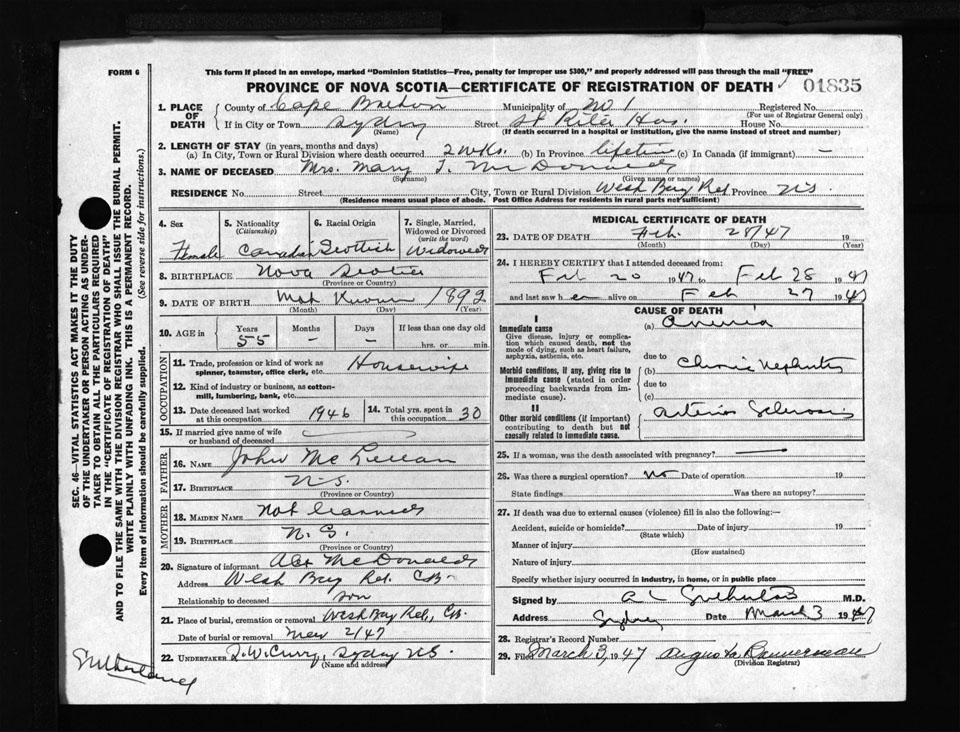 FORM 6
This form if placed in an envelope, marked "Dominion Statistics—Free, penalty for improper use $300," and properly addressed will pass through the mail "FREE"
PROVINCE OF NOVA SCOTIA—CERTIFICATE OF REGISTRATION OF DEATH 01835
1. PLACE OF DEATH
County of Cape Breton Municipality of No 1 Registered No.
(For use of Registrar General only)
If in City or Town Sydney Street St Rita Hos. House No.
(Name) (If death occurred in a hospital or institution, give the name instead of street and number)
2. LENGTH OF STAY (in years, months and days)
(a) In City, Town or Rural Division where death occurred 2 wks. (b) In Province lifetime (c) In Canada (if immigrant) —
3. NAME OF DECEASED Mrs. Mary J. McDonald
(Surname) (Given name or names)
RESIDENCE No. Street City, Town or Rural Division West Bay Rd Province N.S.
(Residence means usual place of abode. Post Office Address for residents in rural parts not sufficient)
SEC. 46—VITAL STATISTICS ACT MAKES IT THE DUTY
OF THE UNDERTAKER OR PERSON ACTING AS UNDER-
TAKER TO OBTAIN ALL THE PARTICULARS REQUIRED
IN THE "CERTIFICATE OF REGISTRATION OF DEATH"
AND TO FILE THE SAME WITH THE DIVISION REGISTRAR WHO SHALL ISSUE THE BURIAL PERMIT.
WRITE PLAINLY WITH UNFADING INK. THIS IS A PERMANENT RECORD.
Every item of information should be carefully supplied. (See reverse side for instructions.)
4. Sex
Female
5. Nationality
(Citizenship)
Canadian
6. Racial Origin
Scottish
7. Single, Married,
Widowed or Divorced
(write the word)
Widowed
8. BIRTHPLACE Nova Scotia
(Province or Country)
9. DATE OF BIRTH Not Known 1892
(Month) (Day) (Year)
10. AGE in Years 55 Months – Days – If less than one day old
hrs. or min.
OCCUPATION
11. Trade, profession or kind of work as
spinner, teamster, office clerk, etc. Housewife
12. Kind of industry or business, as cotton-
mill, lumbering, bank, etc.
13. Date deceased last worked
at this occupation 1946
14. Total yrs. spent in
this occupation 30
15. If married give name of wife
or husband of deceased
FATHER
16. NAME John McLellan
17. BIRTHPLACE N.S.
(Province or Country)
MOTHER
18. MAIDEN NAME Not learned
19. BIRTHPLACE N.S.
(Province or Country)
20. Signature of informant Alex McDonald
Address West Bay Rd. C.B.
Relationship to deceased son
21. Place of burial, cremation or removal West Bay Rd., C.B.
Date of burial or removal Mar 2/47
22. UNDERTAKER Sydney N.S.
(Name and address)
MEDICAL CERTIFICATE OF DEATH
23. DATE OF DEATH Feb. 28/47 19
(Month) (Day) (Year)
24. I HEREBY CERTIFY that I attended deceased from:
Feb 20 1947, to Feb 28 1947
and last saw her alive on Feb 27 1947
CAUSE OF DEATH
I
Immediate cause
Give disease, injury or complica-
tion which caused death, not the
mode of dying, such as heart failure,
asphyxia, asthenia, etc.
(a) Uremia
due to
Morbid conditions, if any, giving rise to
immediate cause (stated in order
proceeding backwards from im-
mediate cause).
(b) Chronic Nephritis
due to
(c)
II
Other morbid conditions (if important)
contributing to death but not
causally related to immediate cause.
Arterio Sclerosis
25. If a woman, was the death associated with pregnancy? —
26. Was there a surgical operation? No Date of operation 19
State findings Was there an autopsy?
27. If death was due to external causes (violence) fill in also the following:—
Accident, suicide or homicide? Date of injury 19
(State which)
Manner of injury
(How sustained)
Nature of injury
Specify whether injury occurred in industry, in home, or in public place
Signed by A L Sutherland M.D.
Address Sydney Date March 3 1947
28. Registrar's Record Number
29. Filed March 3, 1947 Augusta Bannerman
(Division Registrar)
Sutherland